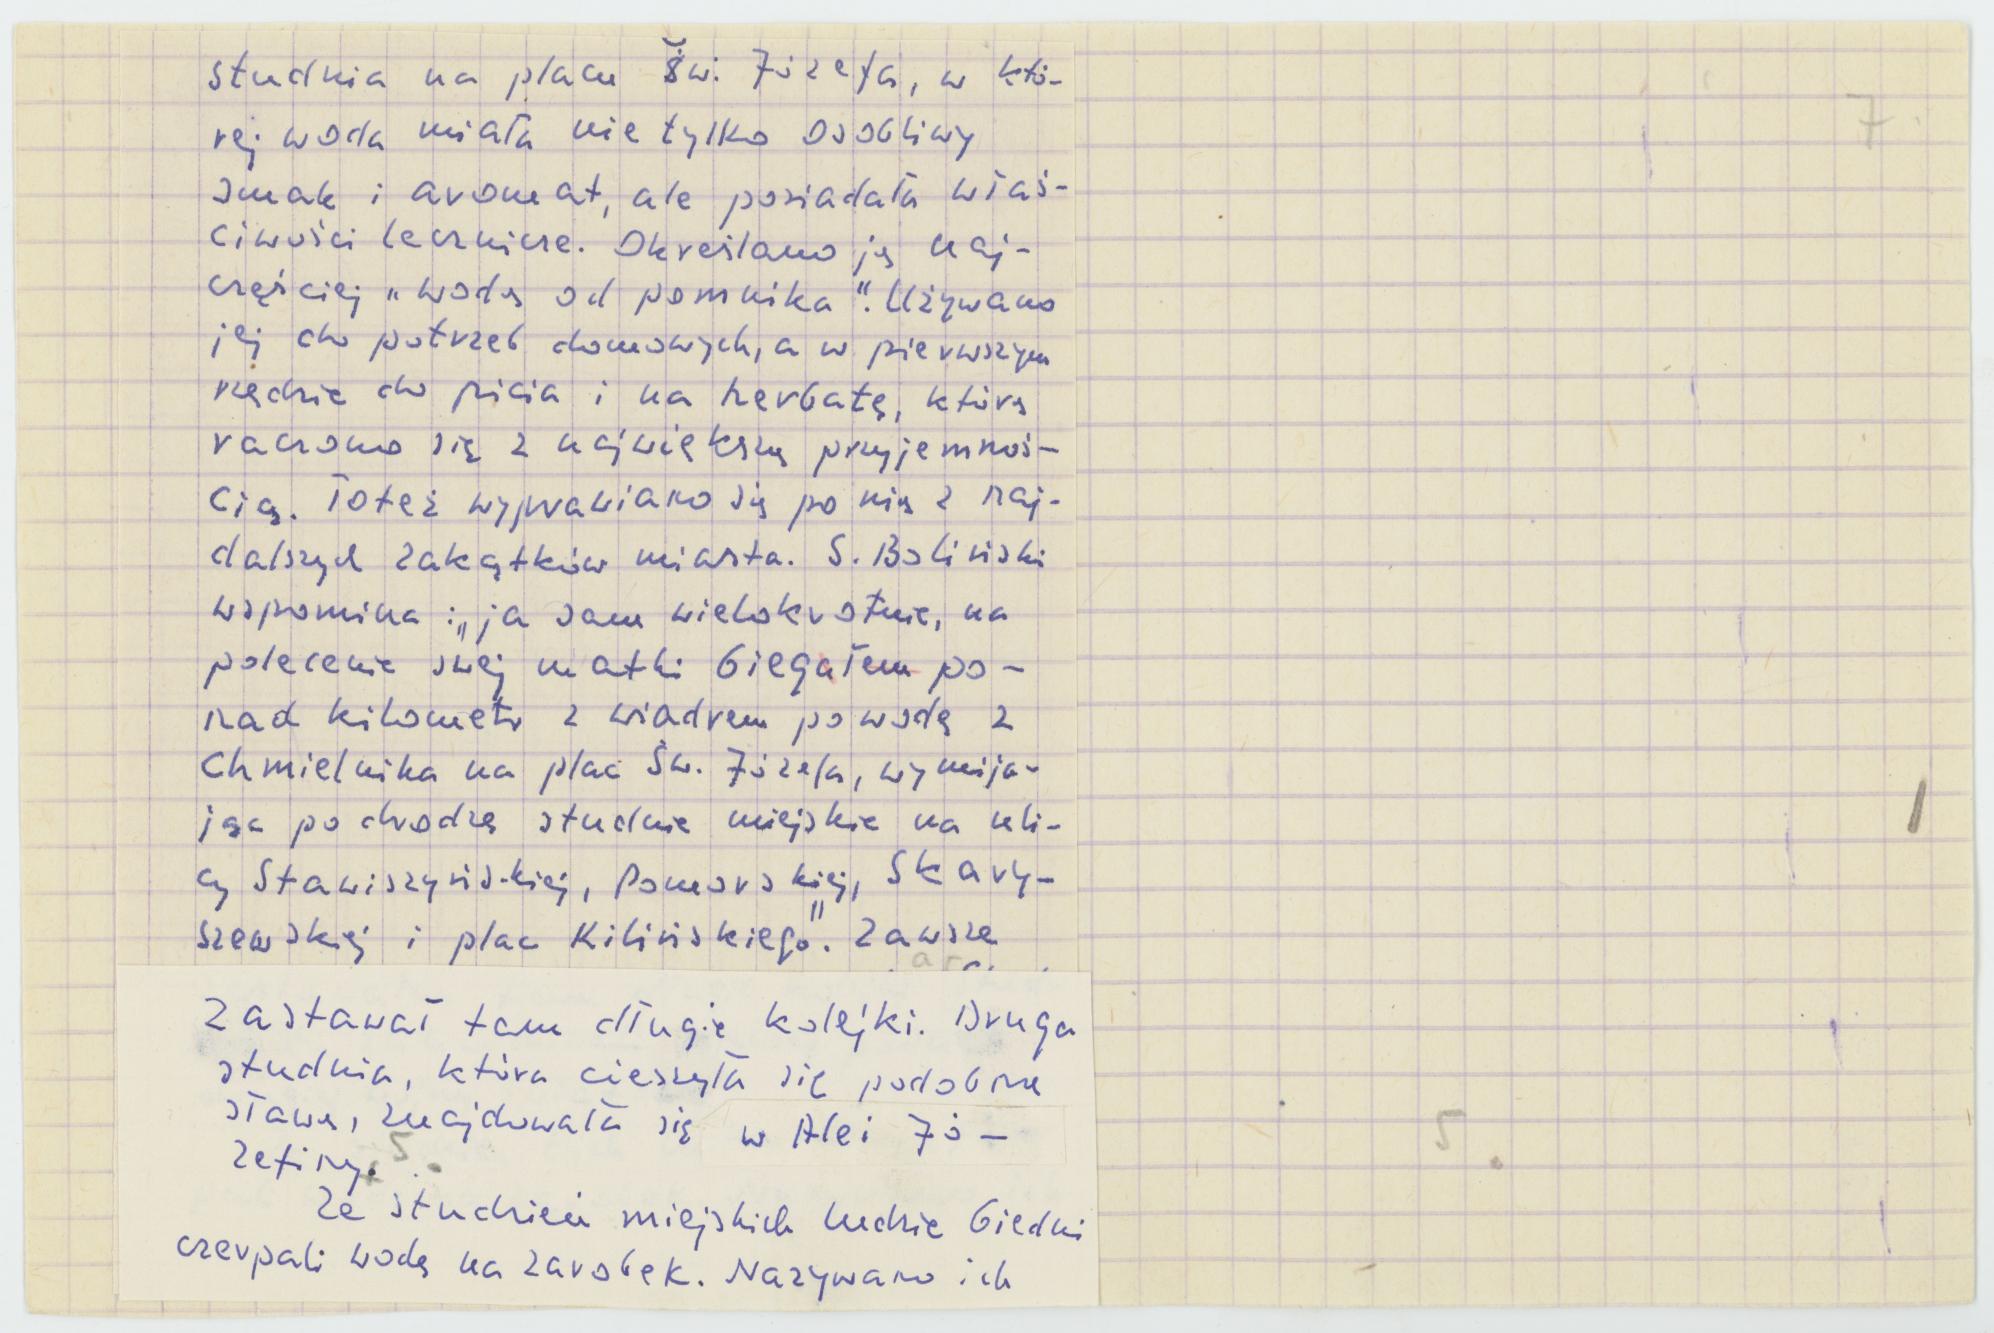 studnia na placu Św. Józefa, w któ-
rej woda miała nie tylko osobliwy
smak i aromat, ale posiadała właś-
ciwości lecznicze. Określano ją naj-
częściej „wodą od pomnika". Używano
jej do potrzeb domowych, a w pierwszym
rzędzie do picia i na herbatę, którą
raczono się z największą przyjemnoś-
cią. Toteż wyprawiano się po nią z naj-
dalszych zakątków miasta. S. Boliński
wspomina: „ja sam wielokrotnie, na
polecenie swej matki biegałem po-
nad kilometr z wiadrem po wodę z
Chmielnika na plac Św. Józefa, wymija-
jąc po drodze studnie miejskie na uli-
cy Stawiszyńskiej, Pomorskiej, Skary-
szewskiej i plac Kilińskiego". Zawsze
zastawał tam długie kolejki. Druga
studnia, która cieszyła się podobną
sławą, znajdowała się w Alei Jó-
zefiny.
Ze studzien miejskich ludzie biedni
czerpali wodę na zarobek. Nazywano ich
7
5.